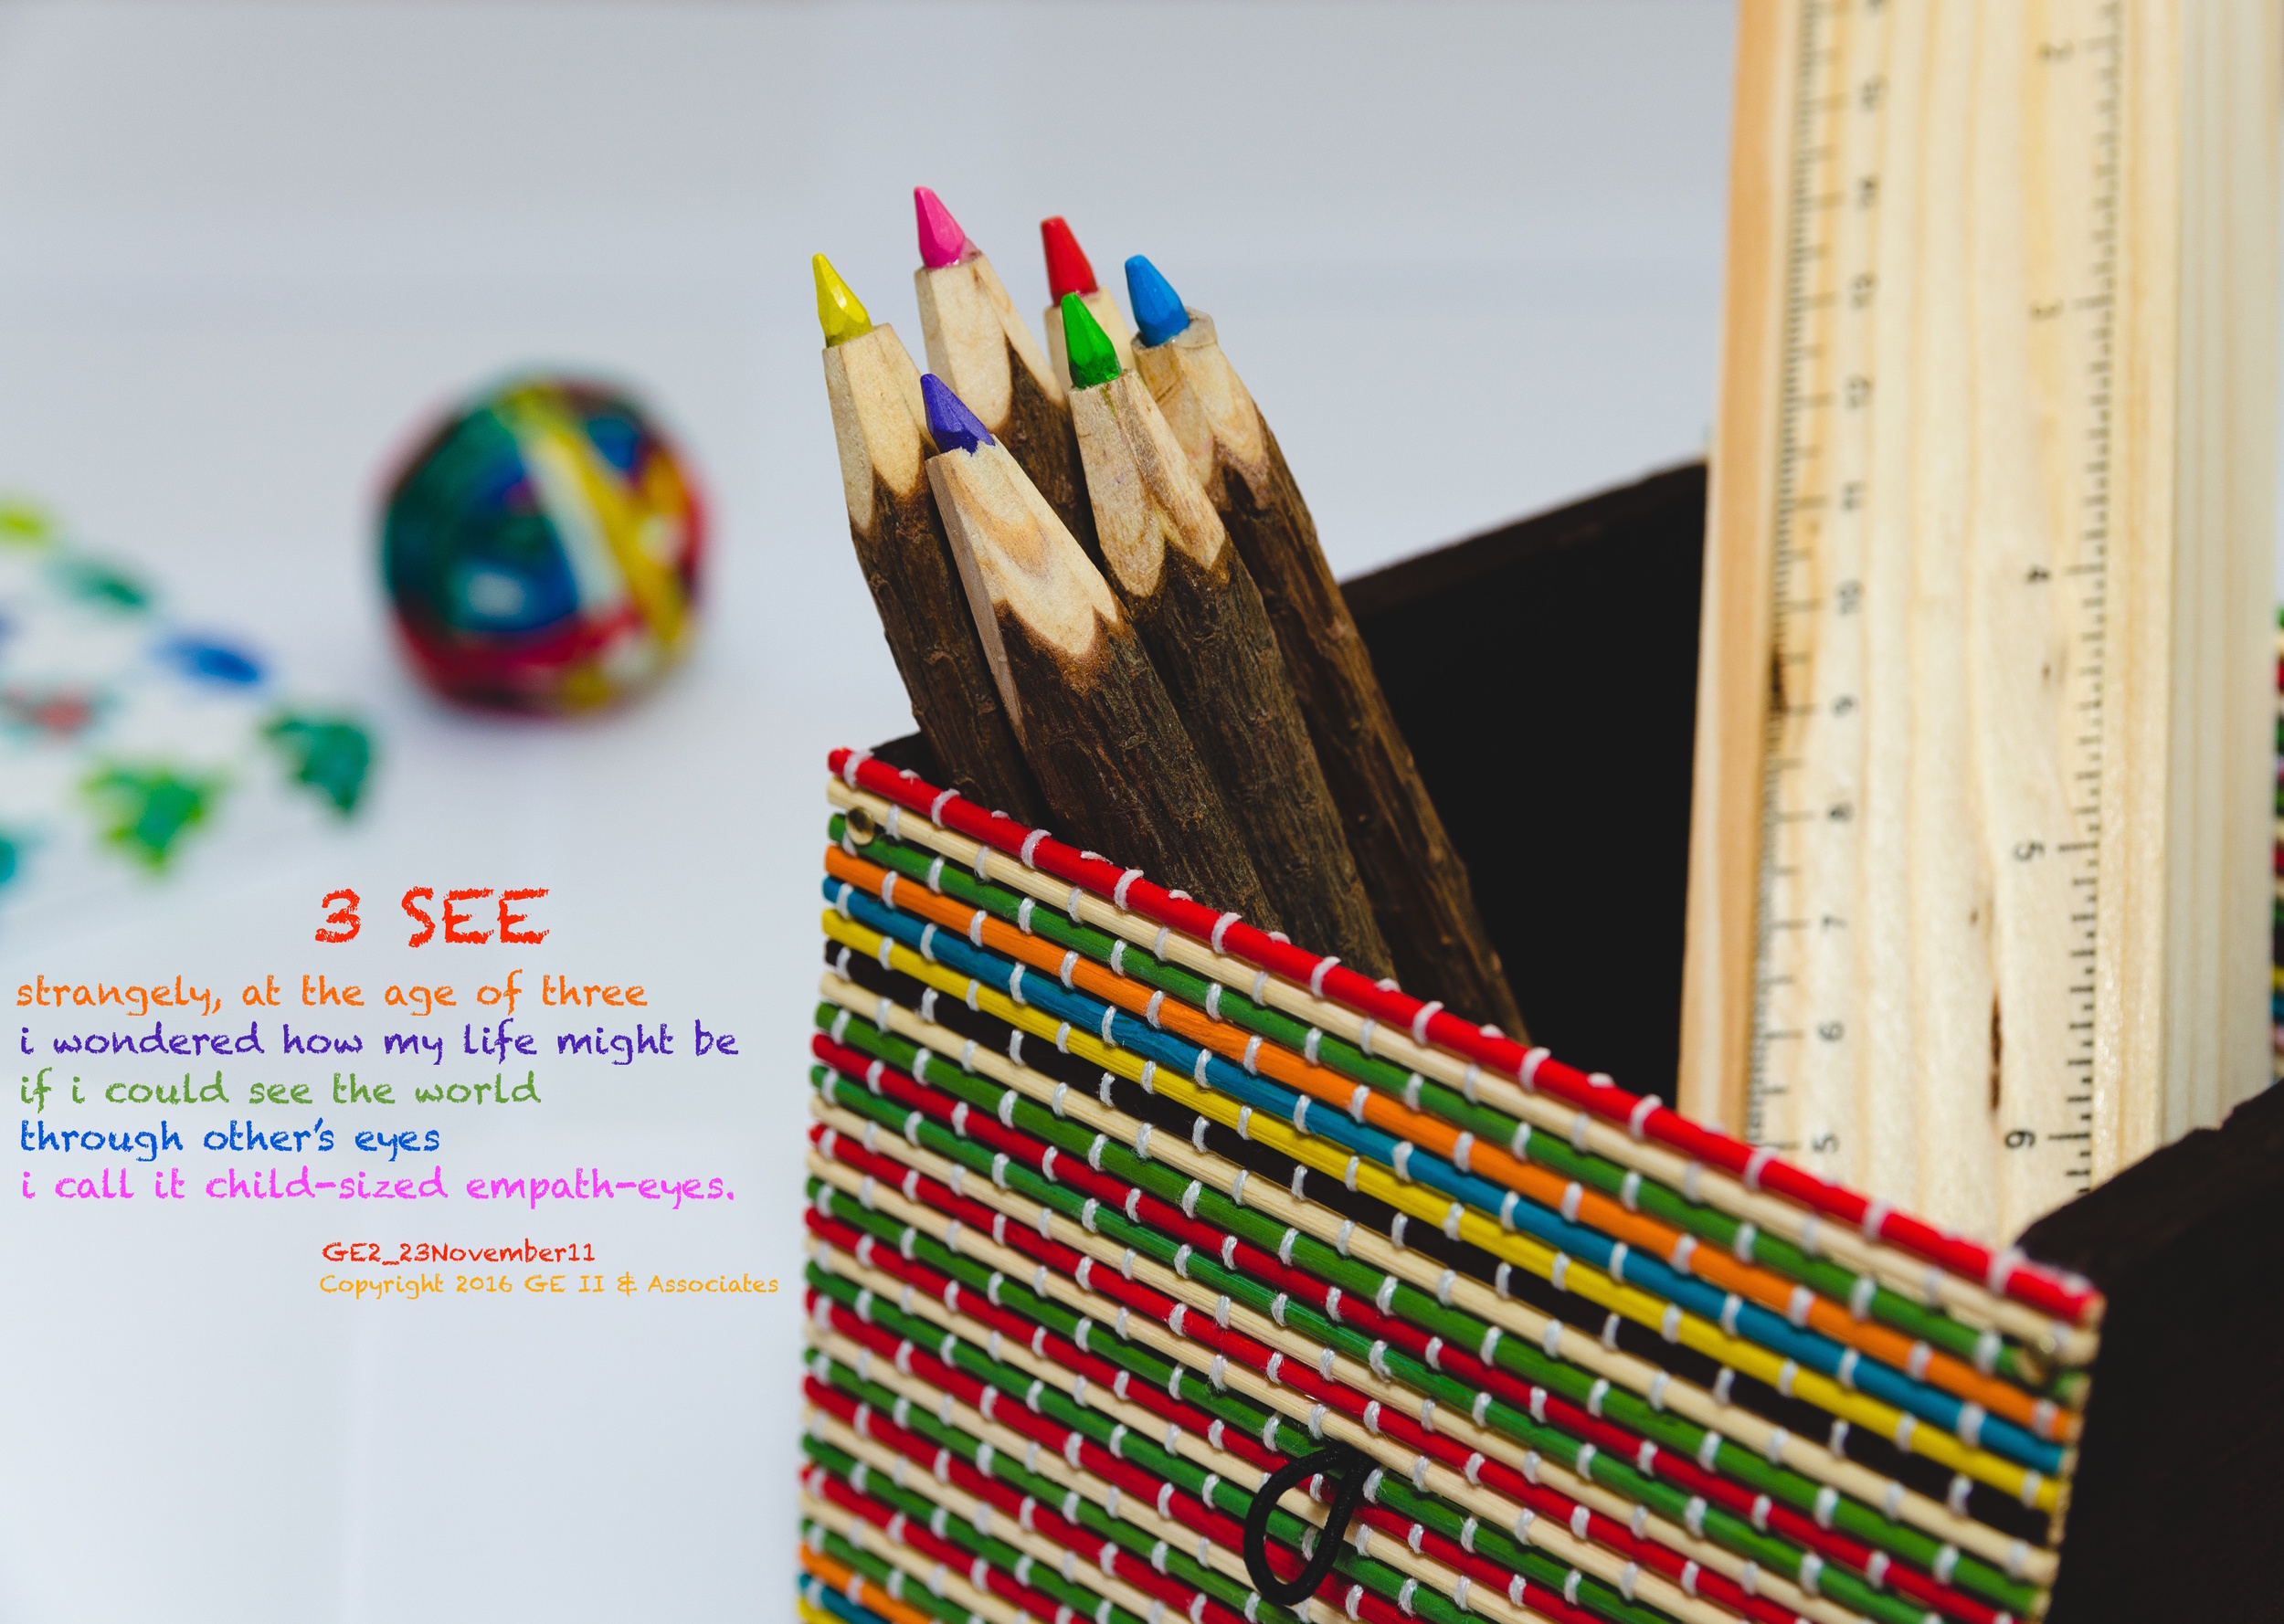 3 SEE
strangely, at the age of three
i wondered how my life might be
if i could see the world
through other's eyes
i call it child-sized empath-eyes.
GE2_23November11
Copyright 2016 GE II & Associates
2
3
4
5
6
10
9
8
7
6
5